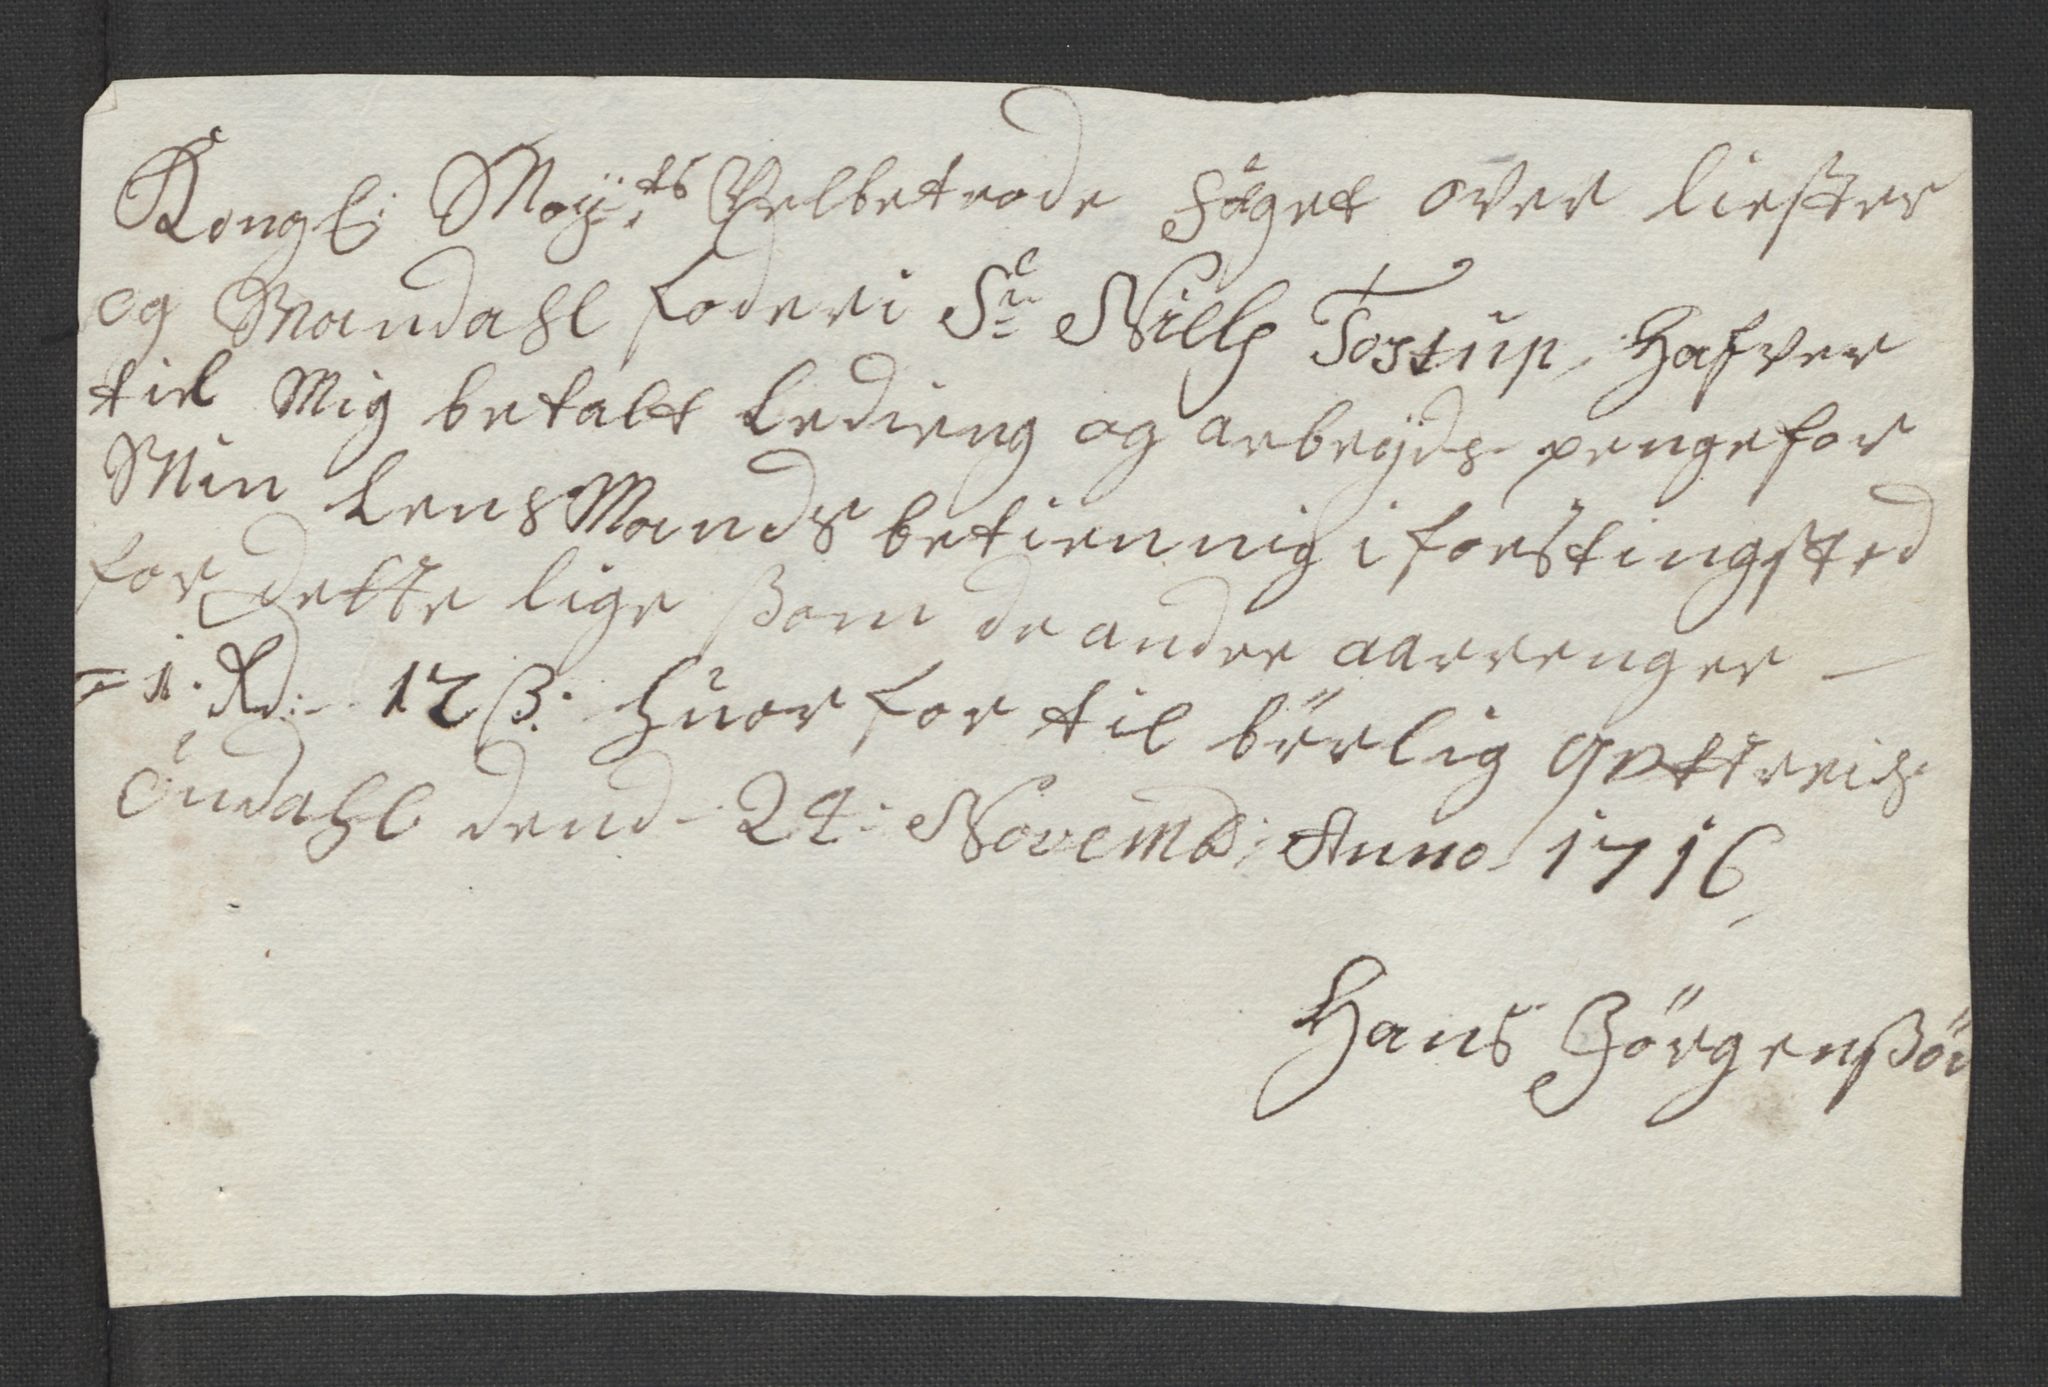 Kongl: Mayts Velbetrode foget over liester
og Mandahl foderi Sr Nills Tostup, Hafver
til Mig betalt Leding og arbeyds pengefor
Min LensMands betienning i forstingsted
for dette lige ßom de andre aarrenger –
= 1 Rd: 12 ß: huor for til börlig qvittreids
Öndahl dend 24: Novemb: Anno 1716
Hans Jörgenßön